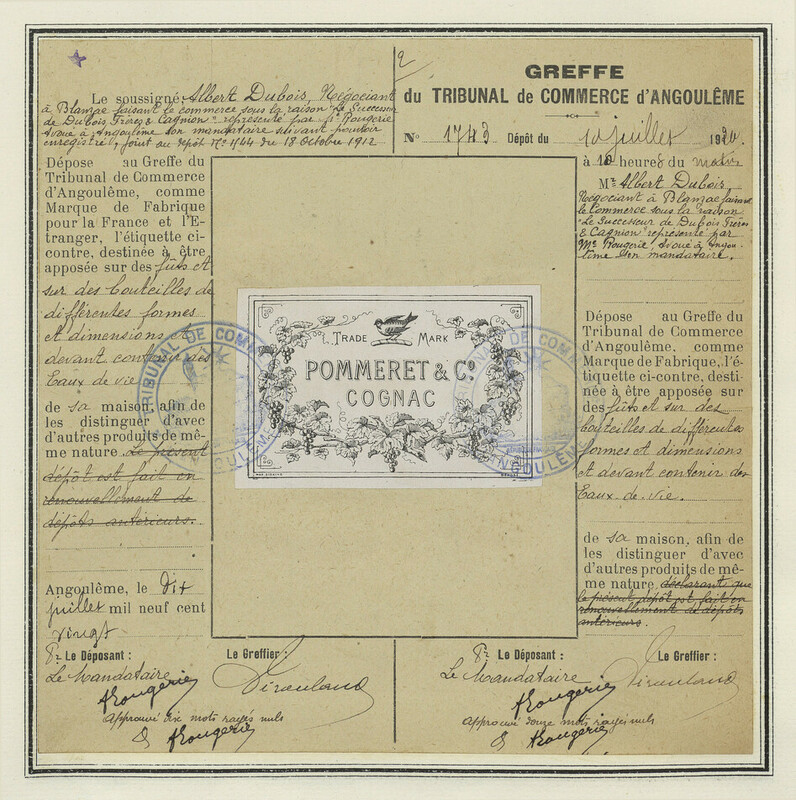 Le soussigné, Albert Dubois, Négociant
à Blanzac faisant le commerce sous la raison "Le Successeur
de Dubois Frères & Cagnion" représenté par Me Rougerie
avoué à Angoulême son mandataire suivant pouvoir
enregistré, joint au dépôt No 1164 du 18 Octobre 1912
Dépose au Greffe du
Tribunal de Commerce
d'Angoulême, comme
Marque de Fabrique
pour la France et l'E-
tranger, l'étiquette ci-
contre, destinée à être
apposée sur des fûts et
sur des bouteilles de
différentes formes
et dimensions et
devant contenir des
Eaux de vie
de sa maison, afin de
les distinguer d'avec
d'autres produits de mê-
me nature. Le présent
dépôt est fait en
renouvellement de
dépôts antérieurs.
Angoulême, le dix
juillet mil neuf cent
vingt
Pr Le Déposant :
Le Greffier :
Le Mandataire
ARougerie
Approuvé dix mots rayés nuls
ARougerie
TRADE MARK
POMMERET & Co
COGNAC
TRIBUNAL DE COMM
ANGOULÊME
2
GREFFE
du TRIBUNAL de COMMERCE d'ANGOULÊME
No 1743 Dépôt du 10 juillet 1920.
à 10 heures du matin
Mr Albert Dubois
Négociant à Blanzac faisant
le Commerce sous la raison
"Le Successeur de Dubois Frères
& Cagnion" représenté par
Me Rougerie, avoué à Angou-
lême son mandataire.
Dépose au Greffe du
Tribunal de Commerce
d'Angoulême, comme
Marque de Fabrique, l'é-
tiquette ci-contre, desti-
née à être apposée sur
des fûts et sur des
bouteilles de différentes
formes et dimensions
et devant contenir des
Eaux. de. vie.
de sa maison, afin de
les distinguer d'avec
d'autres produits de mê-
me nature, déclarant que
le présent dépôt est fait en
renouvellement de dépôts
antérieurs.
Pr Le Déposant :
Le Greffier :
Le Mandataire
ARougerie
approuvé douze mots rayés nuls
ARougerie